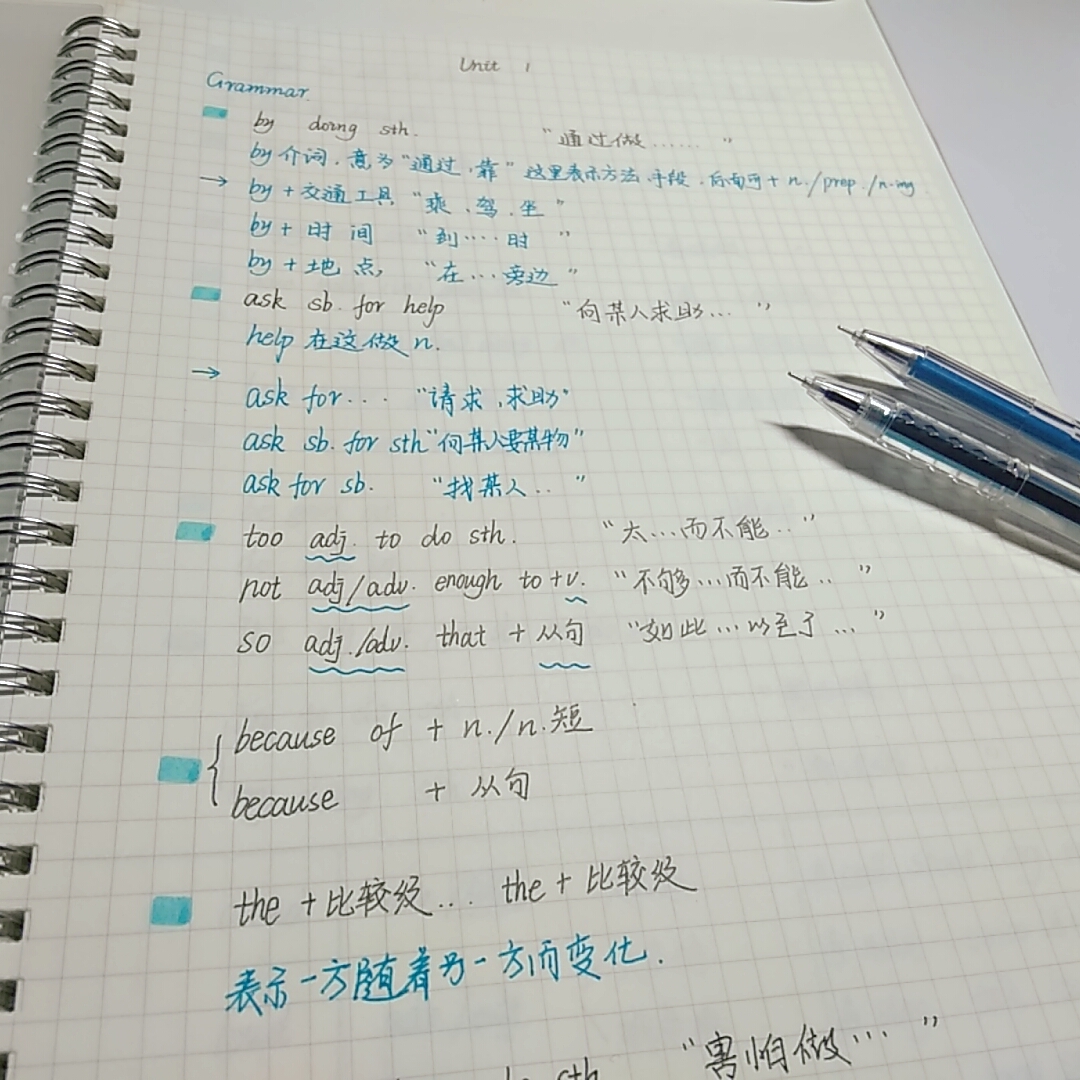 Unit 1
Grammar.
by doing sth. "通过做…… "
by 介词, 意为"通过, 靠" 这里表示方法, 手段, 后面可 + n./prep./n-ing
→ by + 交通工具 "乘, 驾, 坐"
by + 时间 "到…… 时 "
by + 地点, "在… 旁边 "
ask sb. for help "向某人求助… "
help 在这做 n.
→ ask for... "请求, 求助"
ask sb. for sth "向某人要某物"
ask for sb. "找某人.. "
too adj. to do sth. "太…而不能.. "
not adj/adv. enough to +v. "不够…而不能.. "
so adj./adv. that + 从句 "如此…以至于… "
because of + n./n.短
because + 从句
the + 比较级... the + 比较级
表示一方随着另一方而变化.
do sth "害怕做… "